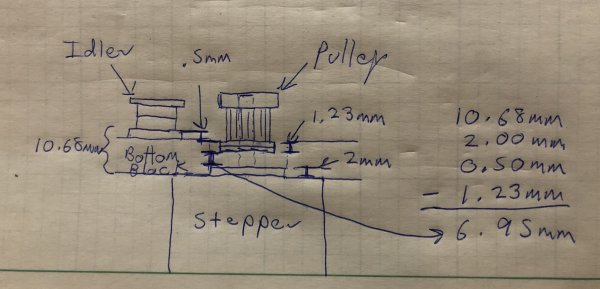 Idler
.5mm
Pulley
1.23mm
10.68mm
Bottom
Block
2mm
Stepper
10.68mm
2.00mm
0.50mm
- 1.23mm
6.95mm